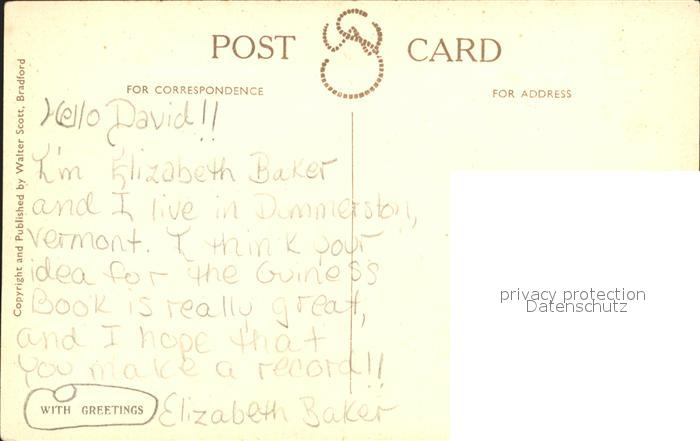 POST CARD
FOR CORRESPONDENCE
FOR ADDRESS
Copyright and Published by Walter Scott, Bradford
Hello David!!
I'm Elizabeth Baker
and I live in Dummerston,
Vermont. I think your
idea for the Guiness
Book is really great,
and I hope that
you make a record!!
WITH GREETINGS
Elizabeth Baker
privacy protection
Datenschutz